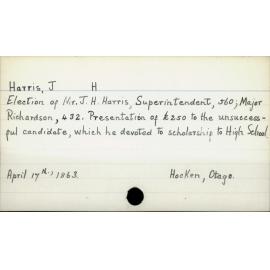 Harris, J H
Election of Mr. J. H. Harris, Superintendent, 560; Major
Richardson, 432. Presentation of £250 to the unsuccess-
ful candidate, which he devoted to scholarship to High School.
April 17th, 1863. Hocken, Otago.